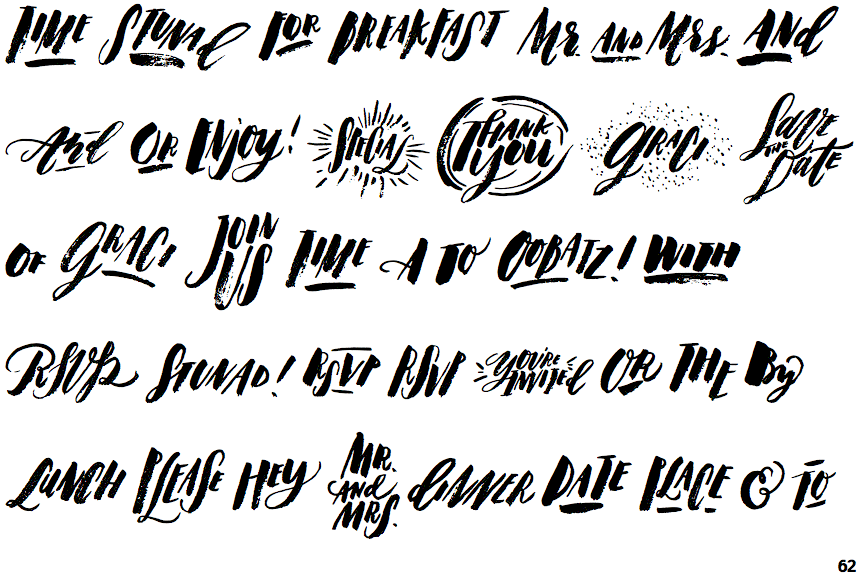 TIME STUNAD FOR BREAKFAST Mr. AND Mrs. AND
And OR ENJOY! SPECIAL THANK YOU GRACI Save THE Date
OF GRACI JOIN US TIME A TO OOBATZ! WITH
RSVP STUNAD! RSVP RSVP YOU'RE INVITED OR THE By
LUNCH PLEASE HEY MR. AND MRS. DINNER DATE PLACE & TO
62